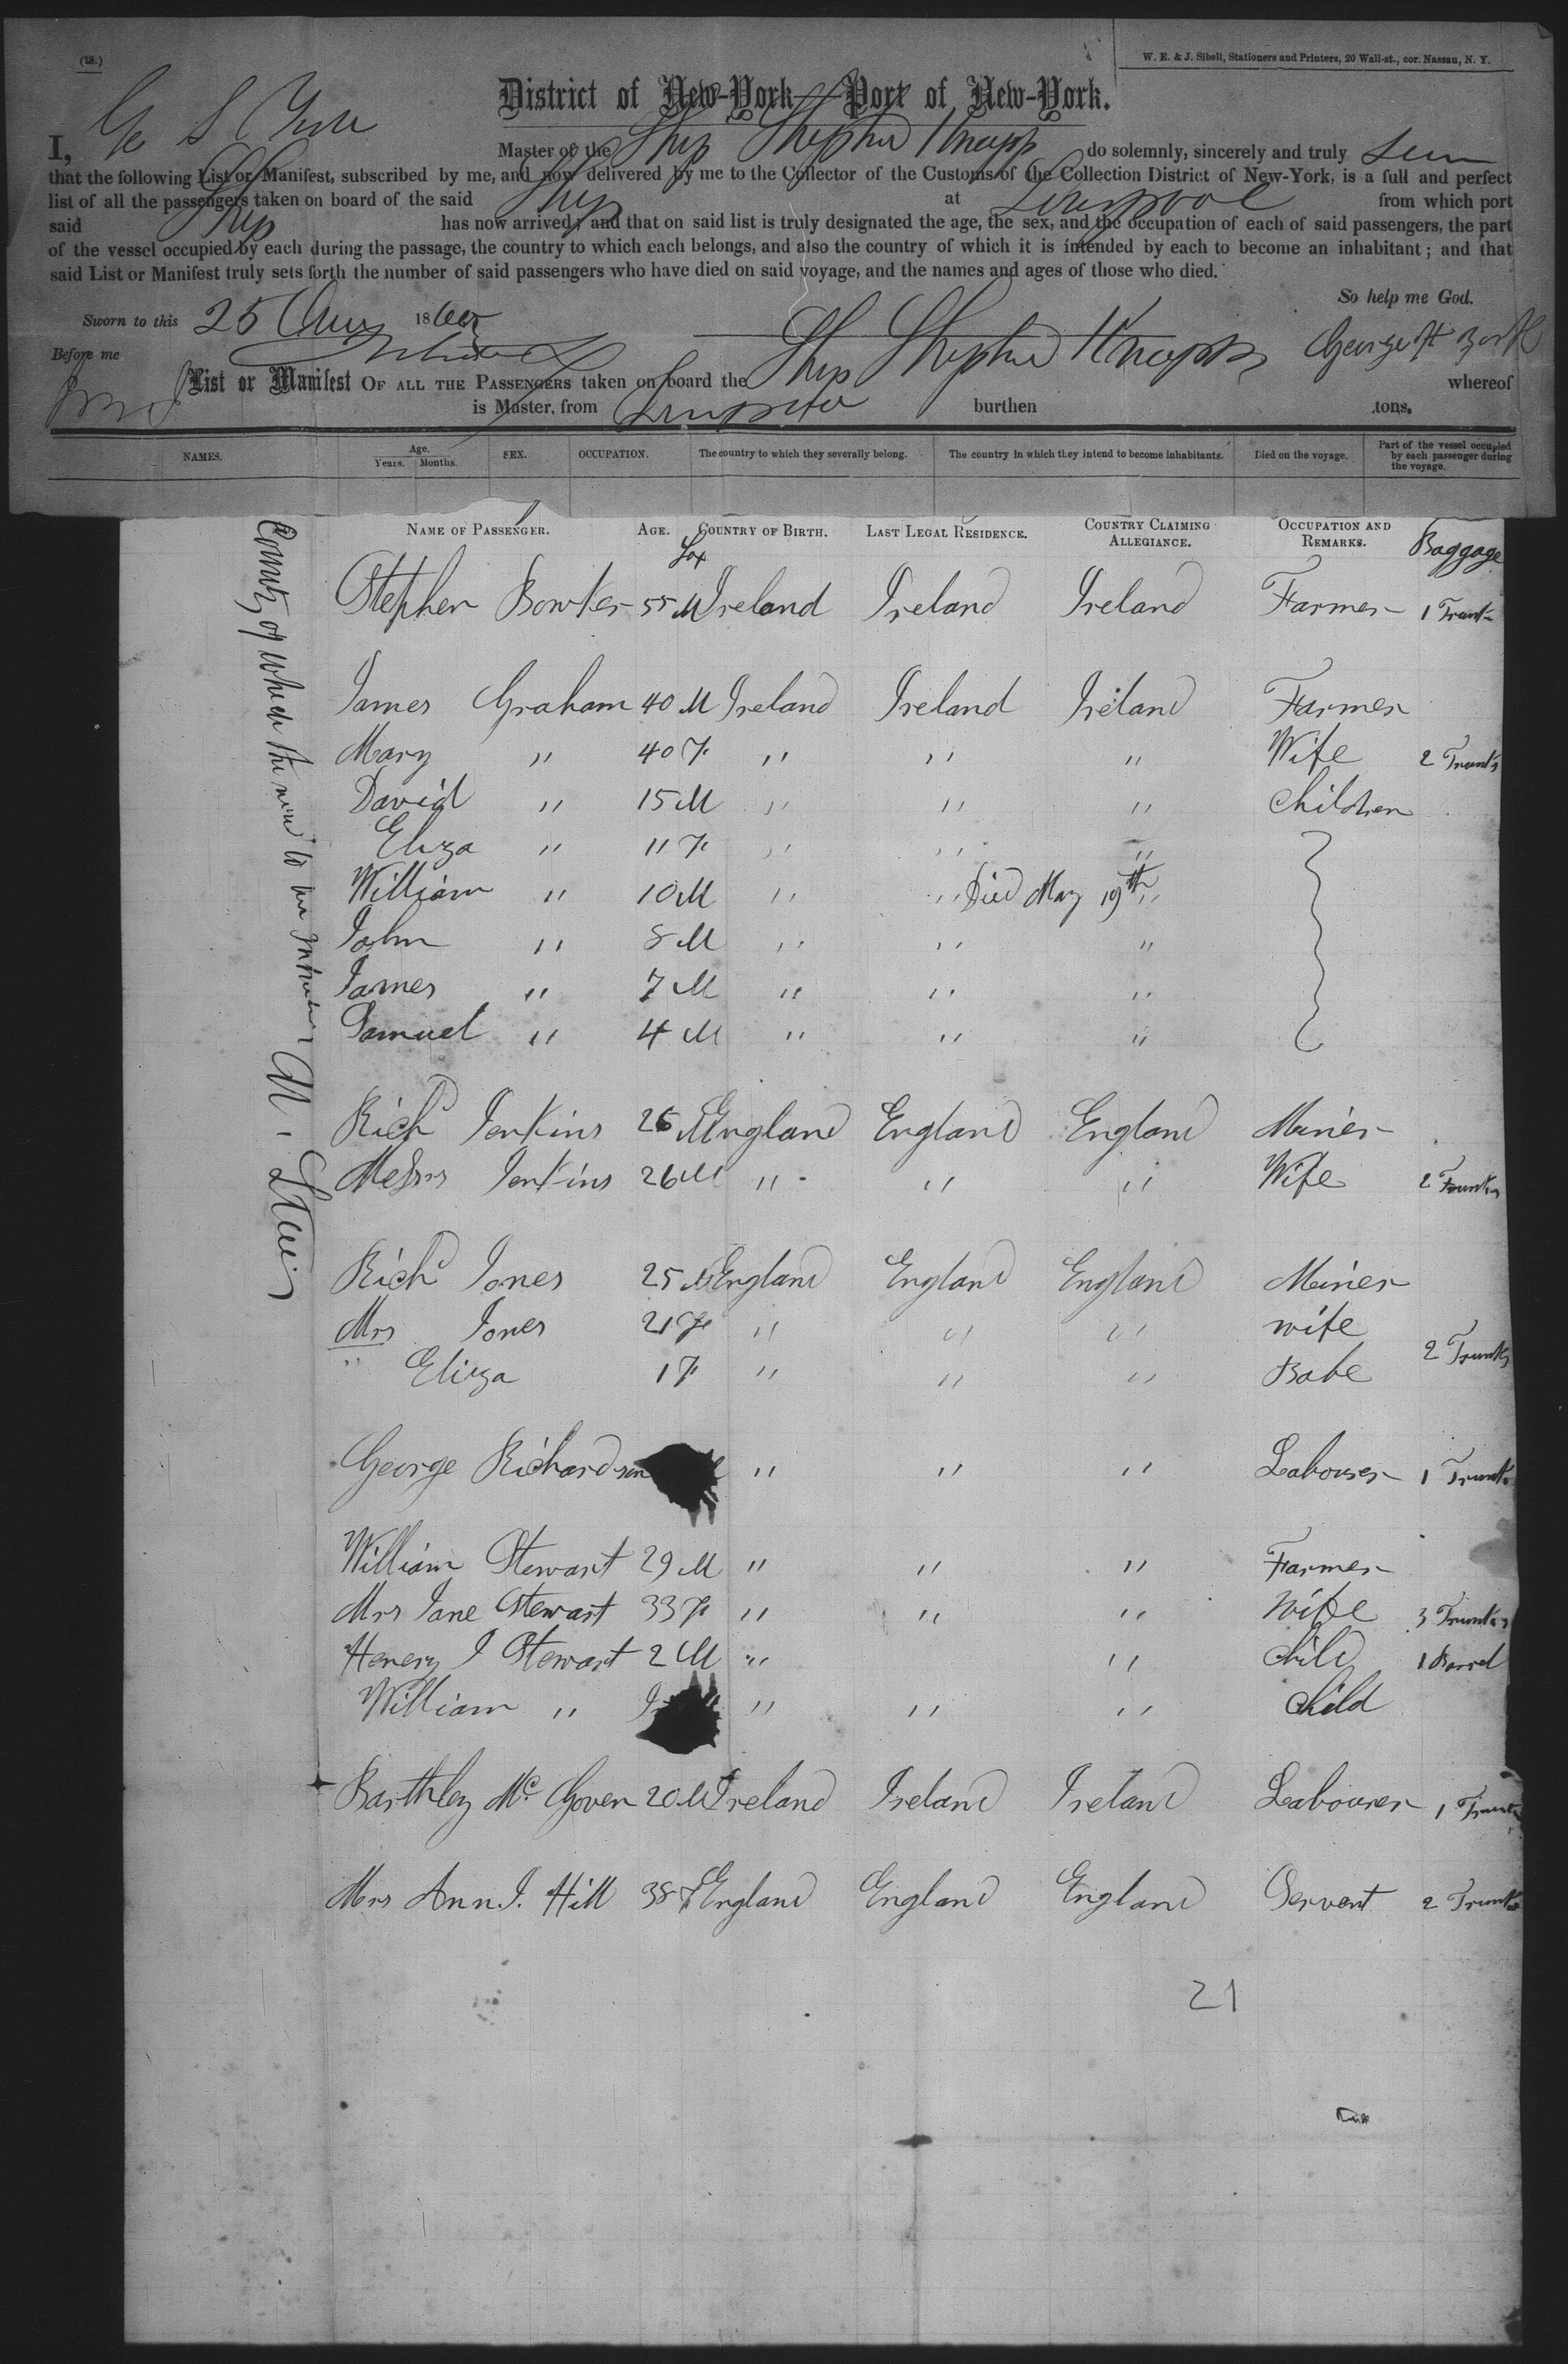 (18.)
W. E. & J. Sibell, Stationers and Printers, 20 Wall-st., cor. Nassau, N. Y.
District of New-York—Port of New-York.
I, Master of the Ship Stephen Knapp do solemnly, sincerely and truly
that the following List or Manifest, subscribed by me, and now delivered by me to the Collector of the Customs of the Collection District of New-York, is a full and perfect
list of all the passengers taken on board of the said Ship at Liverpool from which port
said Ship has now arrived; and that on said list is truly designated the age, the sex, and the occupation of each of said passengers, the part
of the vessel occupied by each during the passage, the country to which each belongs, and also the country of which it is intended by each to become an inhabitant; and that
said List or Manifest truly sets forth the number of said passengers who have died on said voyage, and the names and ages of those who died.
So help me God.
Sworn to this 25 186
Before me
List or Manifest OF ALL THE PASSENGERS taken on board the Ship Stephen Knapp whereof
is Master, from burthen tons.
NAMES. Age. Years. Months. SEX. OCCUPATION. The country to which they severally belong. The country in which they intend to become inhabitants. Died on the voyage. Part of the vessel occupied by each passenger during the voyage.
NAME OF PASSENGER. AGE. Sex COUNTRY OF BIRTH. LAST LEGAL RESIDENCE. COUNTRY CLAIMING ALLEGIANCE. OCCUPATION AND REMARKS. Baggage
Stephen Bowker 55 M Ireland Ireland Ireland Farmer 1 Trunk
James Graham 40 M Ireland Ireland Ireland Farmer
Mary " 40 F " " " Wife 2 Trunks
David " 15 M " " " Children
Eliza " 11 F " " "
William " 10 M " " Died May 19th "
John " 8 M " " "
James " 7 M " " "
Samuel " 4 M " " "
Richd Jenkins 26 M England England England Miner
Jenkins 26 M " " " Wife 2 Trunks
Richd Jones 25 M England England England Miner
Mrs Jones 21 F " " " wife
" Eliza 1 F " " " Babe 2 Trunks
George Richardson " " " Labourer 1 Trunk
William Stewart 29 M " " " Farmer
Mrs Jane Stewart 33 F " " " Wife 3 Trunks
Henery J Stewart 2 M " " child 1 Barrel
William " " " " child
Barthley Mc Goven 20 M Ireland Ireland Ireland Labourer 1 Trunk
Mrs Ann J. Hill 38 F England England England Servent 2 Trunks
21